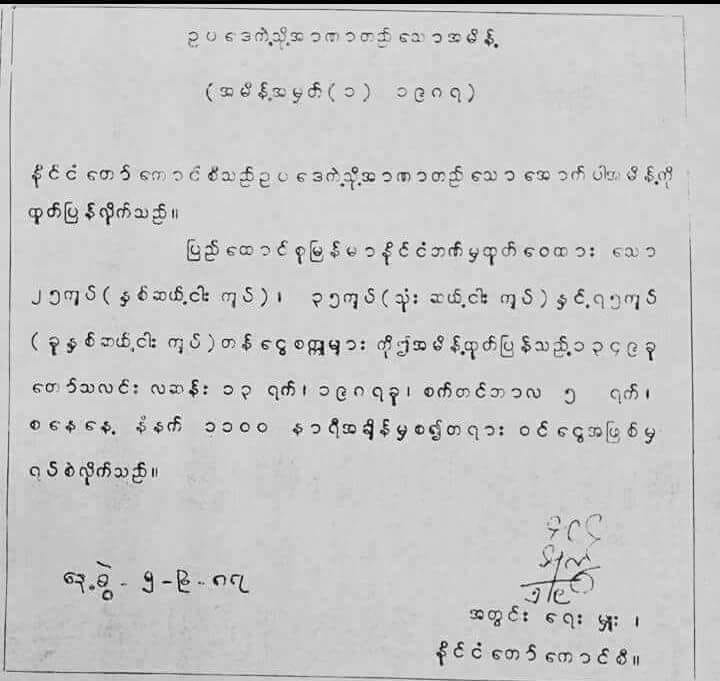 ဥပဒေကဲ့သို့အာဏာတည်သောအမိန့်
(အမိန့်အမှတ်(၁) ၁၉၈၇)
နိုင်ငံတော်ကောင်စီသည်ဥပဒေကဲ့သို့အာဏာတည်သောအောက်ပါအမိန့်ကို
ထုတ်ပြန်လိုက်သည်။
ပြည်ထောင်စုမြန်မာနိုင်ငံဘဏ်မှထုတ်ဝေထားသော
၂၅ကျပ်(နှစ်ဆယ့်ငါးကျပ်)၊ ၃၅ကျပ်(သုံးဆယ့်ငါးကျပ်)နှင့်၇၅ကျပ်
(ခုနှစ်ဆယ့်ငါးကျပ်)တန်ငွေစက္ကူများကိုဤအမိန့်ထုတ်ပြန်သည့်၁၃၄၉ခု
တော်သလင်းလဆန်း ၁၃ ရက်၊ ၁၉၈၇ခု၊ စက်တင်ဘာလ ၅ ရက်၊
စနေနေ့ နံနက် ၁၁၀၀ နာရီအချိန်မှစ၍တရားဝင်ငွေအဖြစ်မှ
ရပ်စဲလိုက်သည်။
နေ့စွဲ - ၅-၉-၈၇
၅/၉
အတွင်းရေးမှူး၊
နိုင်ငံတော်ကောင်စီ။